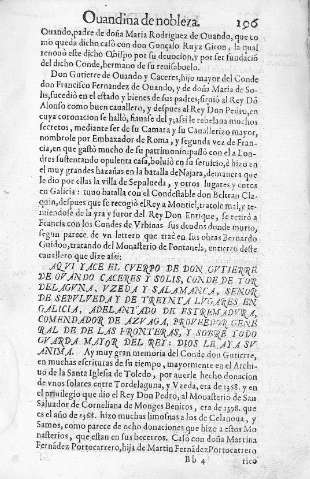 Ouandina de nobleza. 196
Ouando, padre de doña Maria Rodriguez de Ouando, que co
mo queda dicho casò con don Gonçalo Ruyz Giron, la qual
renouò este dicho Obispo por su deuocion, y por ser fundació
del dicho Conde, hermano de su reuisabuelo.
Don Gutierre de Ouando y Caceres, hijo mayor del Conde
don Francisco Fernandez de Ouando, y de doña Maria de So-
lis, sucediò en el estado y bienes de sus padres, siruiò al Rey Dõ
Alonso como buen cauallero, y despues al Rey Don Pedro, en
cuya coronacion se hallò, fiauase del, y assi le reuelaua muchos
secretos, mediante ser de su Camara y su Cauallerizo mayor,
nombrole por Embaxador de Roma, y segunda vez de Fran-
cia, en que gastò mucho de su patrimonio, passò con el a Lon
dres sustentando opulenta casa, boluiò en su seruicio, è hizo en
el muy grandes hazañas en la batalla de Najara, demanera que
le dio por ellas la villa de Sepulueda, y otros lugares y cotos
en Galicia: tuuo batalla con el Condestable don Beltran Cla-
quin, despues que se recogiò el Rey a Montiel, tratole mal, y te-
miendose de la yra y furor del Rey Don Enrique, se retirò a
Francia con los Condes de Vrbinas sus deudos, donde murio,
segun parece de vn letrero que trae en sus obras Bernardo
Guidoo, tratando del Monasterio de Pontouels, entierro deste
cauallero que dize assi:
AQVI YACE EL CVERPO DE DON GVTIERRE
DE OVANDO CACERES Y SOLIS, CONDE DE TOR
DELAGVNA, VZEDA Y SALAMANCA, SEÑOR
DE SEPVLVEDA Y DE TREYNTA LVGARES EN
GALICIA, ADELANTADO DE ESTREMADVRA,
COMENDADOR DE AZVAGA, PROVEEDOR GENE
RAL DE DE LAS FRONTERAS, Y SOBRE TODO
GVARDA MAYOR DEL REY: DIOS LE AYA SV
ANIMA. Ay muy gran memoria del Conde don Gutierre,
en muchas escrituras de su tiempo, mayormente en el Archiuo
de la Santa Iglesia de Toledo, por auerle hecho donacion
de vnos solares entre Tordelaguna, y Vzeda, era de 1368. y en
el priuilegio que dio el Rey Don Pedro, al Monasterio de San
Saluador de Corneliana de Monges Benitos, era de 1398. que
es el año de 1368. hizo muchas limosnas a los de Celanoua, y
Samos, como parece de ocho donaciones que hize a estos Mo
nasterios, que estan en sus bezerros. Casò con doña Martina
Fernandez Portocarrero, hija de Martin Fernandez Portocarrero
Bb 4 rico